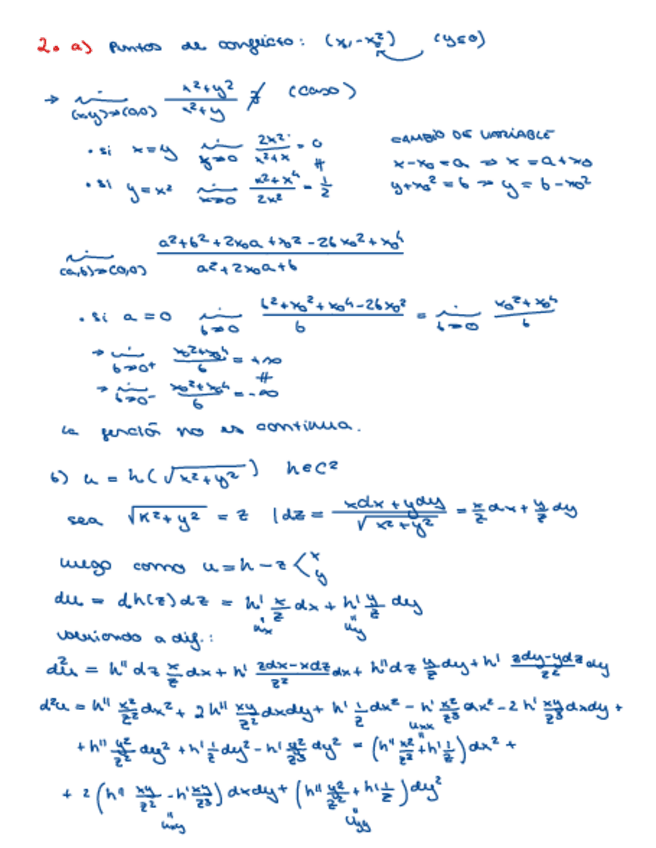 2. a) Puntos de conflicto: (x₀, -x₀²) (y≤0)
→ lim (x,y)→(0,0) x²+y² / x²+y ∄ (caso)
• si x=y lim x→0 2x² / x²+x = 0
≠
• si y=x² lim x→0 x²+x⁴ / 2x² = 1/2
CAMBIO DE VARIABLE
x-x₀=a ⇒ x=a+x₀
y+x₀²=b ⇒ y=b-x₀²
lim (a,b)→(0,0) a²+b²+2x₀a+x₀²-2bx₀²+x₀⁴ / a²+2x₀a+b
• si a=0 lim b→0 b²+x₀²+x₀⁴-2bx₀² / b = lim b→0 x₀²+x₀⁴ / b
→ lim b→0⁺ x₀²+x₀⁴ / b = +∞
≠
→ lim b→0⁻ x₀²+x₀⁴ / b = -∞
la función no es continua.
b) u = h(√x²+y²) h∈C²
sea √x²+y² = z | dz = xdx+ydy / √x²+y² = x/z dx + y/z dy
luego como u=h-z < x y
du = dh(z)dz = h' x/z dx + h' y/z dy
u_x u_y
volviendo a dif.:
d²u = h'' dz x/z dx + h' zdx-xdz / z² dx + h'' dz y/z dy + h' zdy-ydz / z² dy
d²u = h'' x²/z² dx² + 2h'' xy/z² dxdy + h' 1/z dx² - h' x²/z³ dx² - 2h' xy/z³ dxdy +
u_xx
+ h'' y²/z² dy² + h' 1/z dy² - h' y²/z³ dy² = (h'' x²/z² + h' 1/z) dx² +
+ 2 (h'' xy/z² - h' xy/z³) dxdy + (h'' y²/z² + h' 1/z) dy²
u_xy u_yy